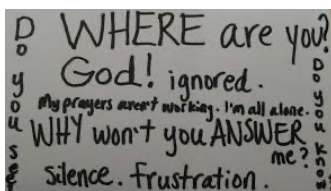 Do you see
WHERE are you?
God! ignored.
My prayers aren't working. I'm all alone.
WHY won't you ANSWER
me?
silence. frustration.
Do you know